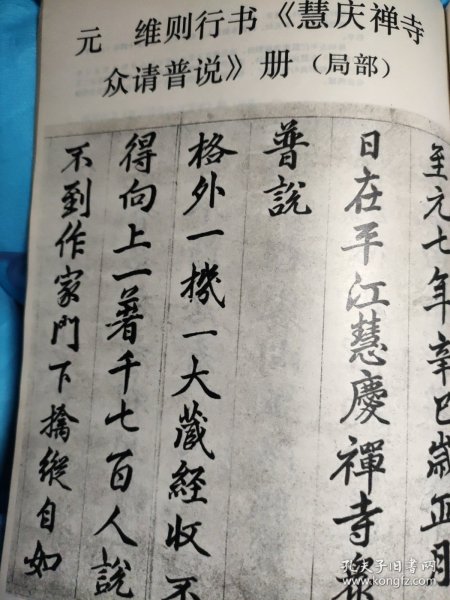 元　维则行书《慧庆禅寺
众请普说》册（局部）
至元七年辛巳歲正月
日在平江慧慶禪寺衆
普説
格外一機一大藏経收不
得向上一著千七百人説
不到作家門下擒縱自如
孔夫子旧书网